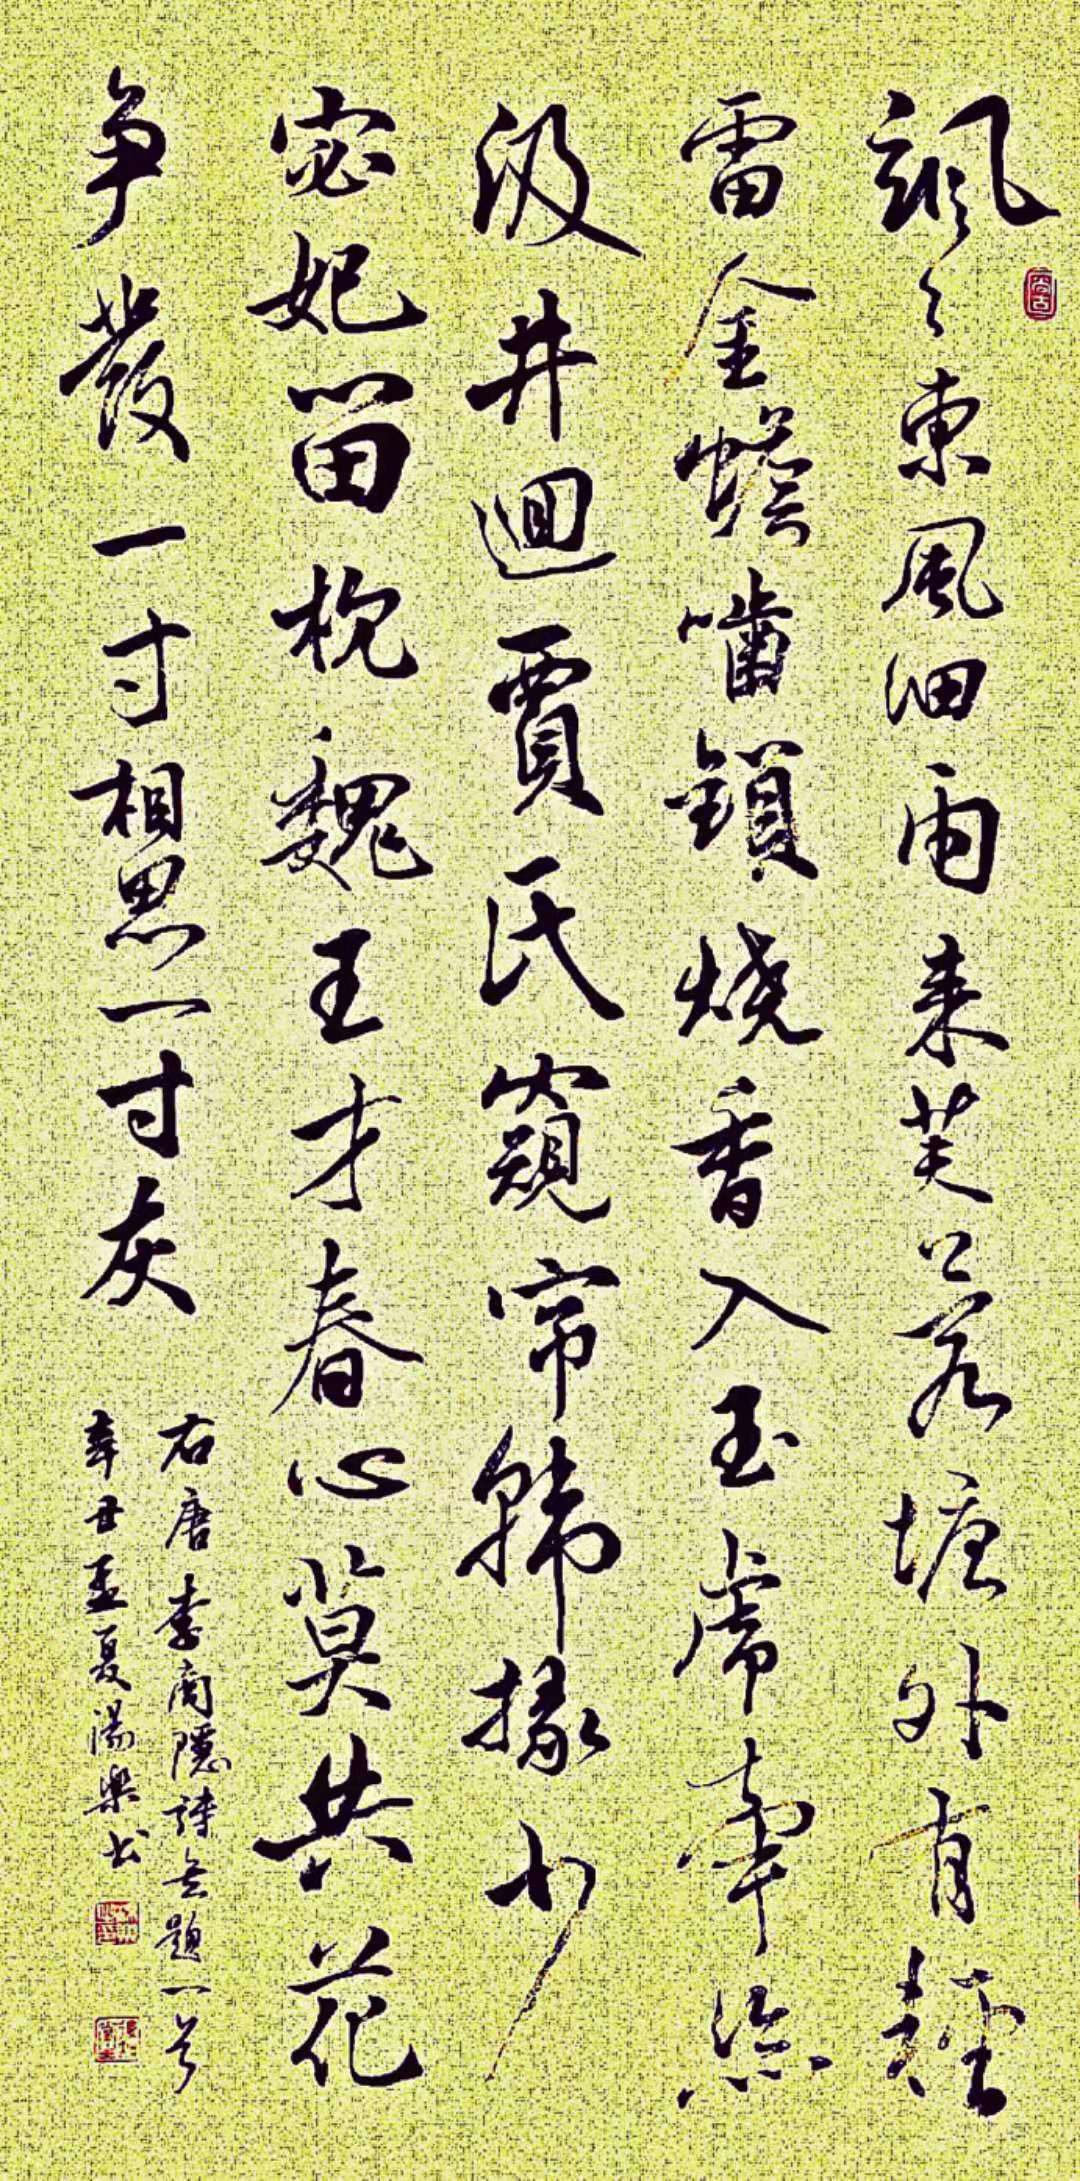 颯々東風細雨来芙蓉塘外有輕
雷金蟾嚙鎖燒香入玉虎牽絲
汲井迴賈氏窺帘韓掾少
宓妃留枕魏王才春心莫共花
争發一寸相思一寸灰
右唐李商隱詩無題一首
辛丑孟夏湯樂书
尚古